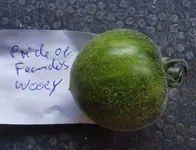 Pride of
Faendos
Wooly